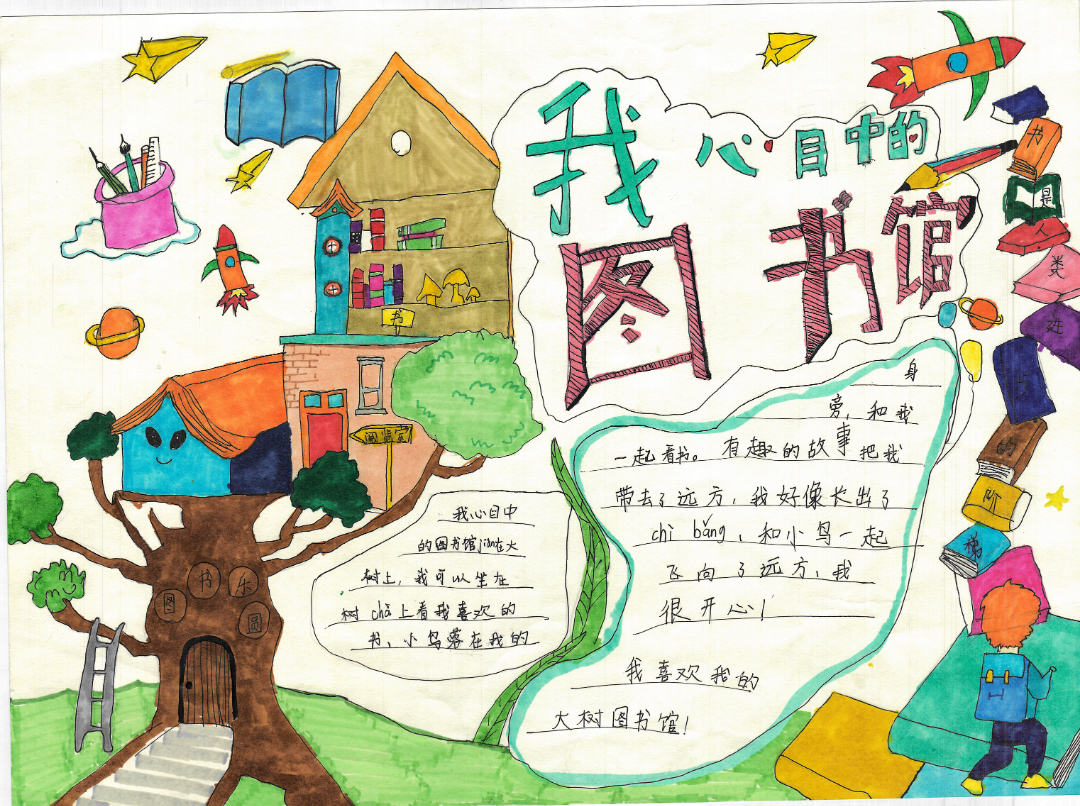 我心目中的
图书馆
书是人类进步的阶梯
书
阅览室
图书乐园
我心目中
的图书馆jiàn在大
树上，我可以坐在
树chā上看我喜欢的
书、小鸟落在我的
身
旁，和我
一起看书。有趣的故事把我
带去了远方，我好像长出了
chì bǎng，和小鸟一起
飞向了远方，我
很开心！
我喜欢我的
大树图书馆！